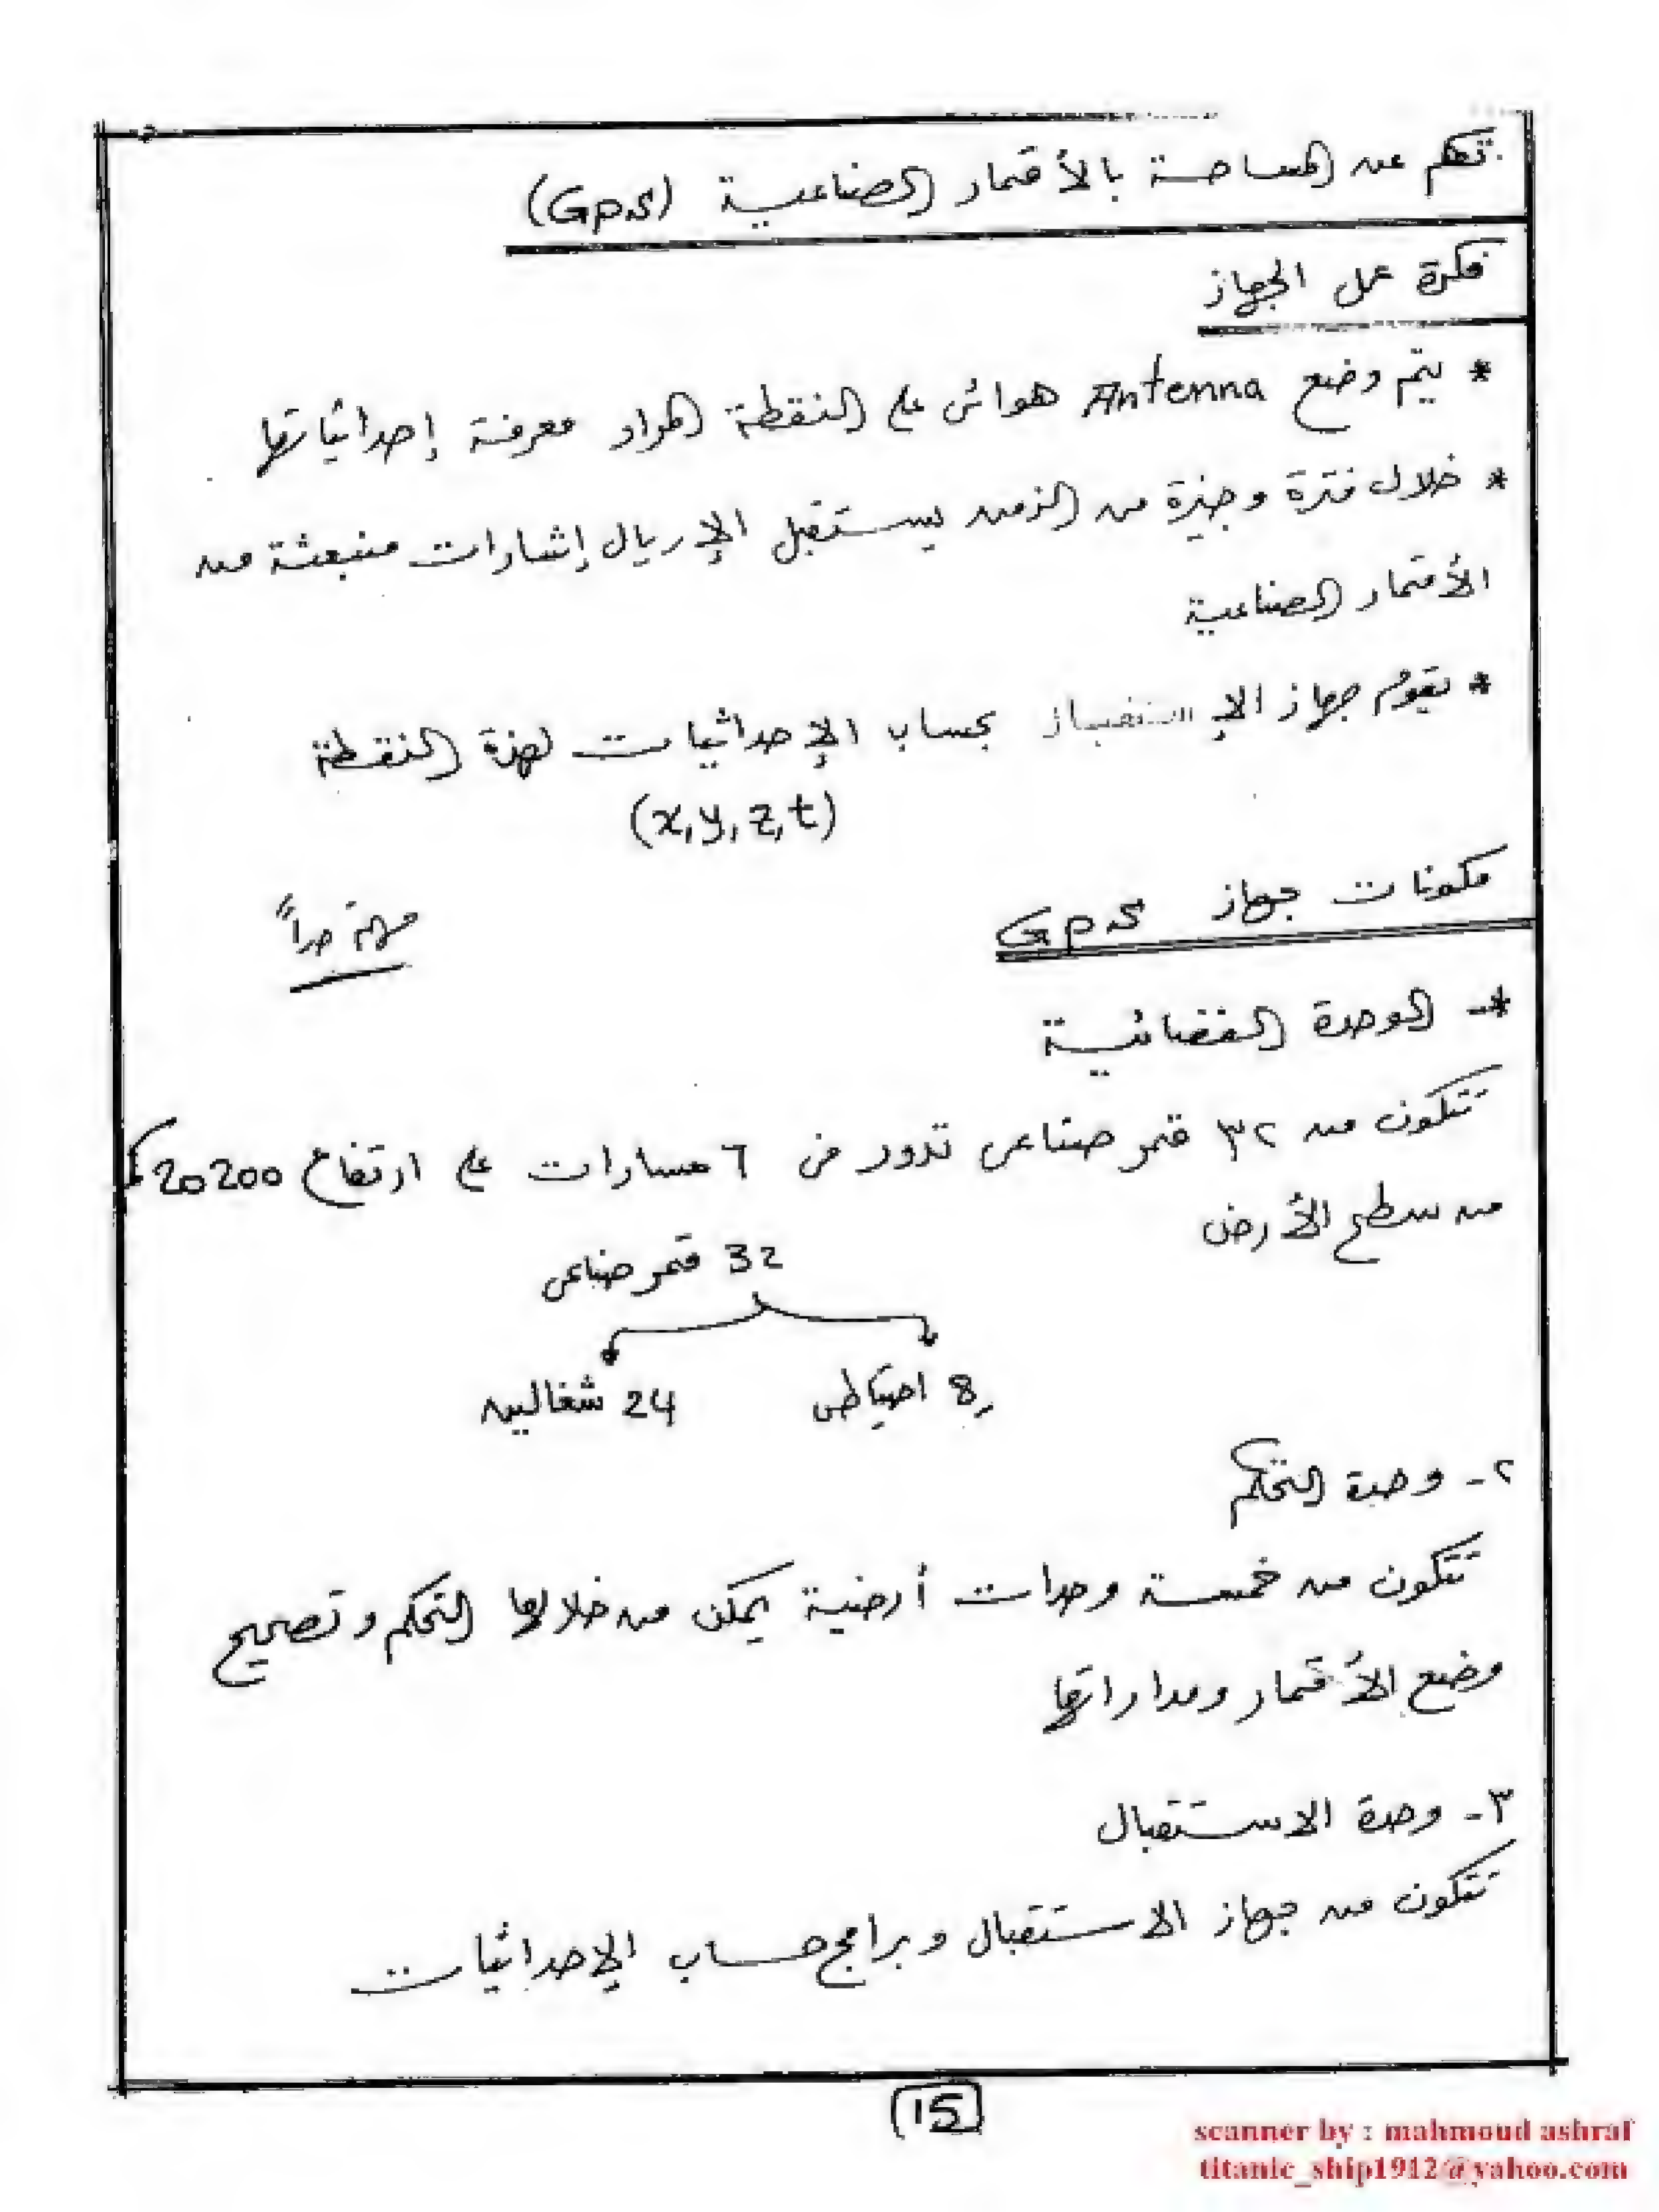 تكلم عن المساحة بالأقمار الصناعية (GPS)
فكرة عمل الجهاز
* يتم وضع Antenna هوائى على النقطة المراد معرفة إحداثياتها
* خلال فترة وجيزة من الزمن يستقبل الإريال إشارات منبعثة من
الأقمار الصناعية
* يقوم جهاز الإستقبال بحساب الإحداثيات لهذة النقطة
(x,y,z,t)
مكونات جهاز GPS
مهمة جداً
*- الوحدة الفضائية
تتكون من ٣٢ قمر صناعى تدور فى ٦ مسارات على ارتفاع 20200 كم
من سطح الأرض
32 قمر صناعى
8 احتياطى
24 شغالين
٢- وحدة التحكم
تتكون من خمسة وحدات أرضية يمكن من خلالها التحكم وتصحيح
وضع الأقمار ومداراتها
٣- وحدة الاستقبال
تتكون من جهاز الاستقبال وبرامج حساب الإحداثيات
15
scanner by : mahmoud ashraf
titanic_ship1912@yahoo.com